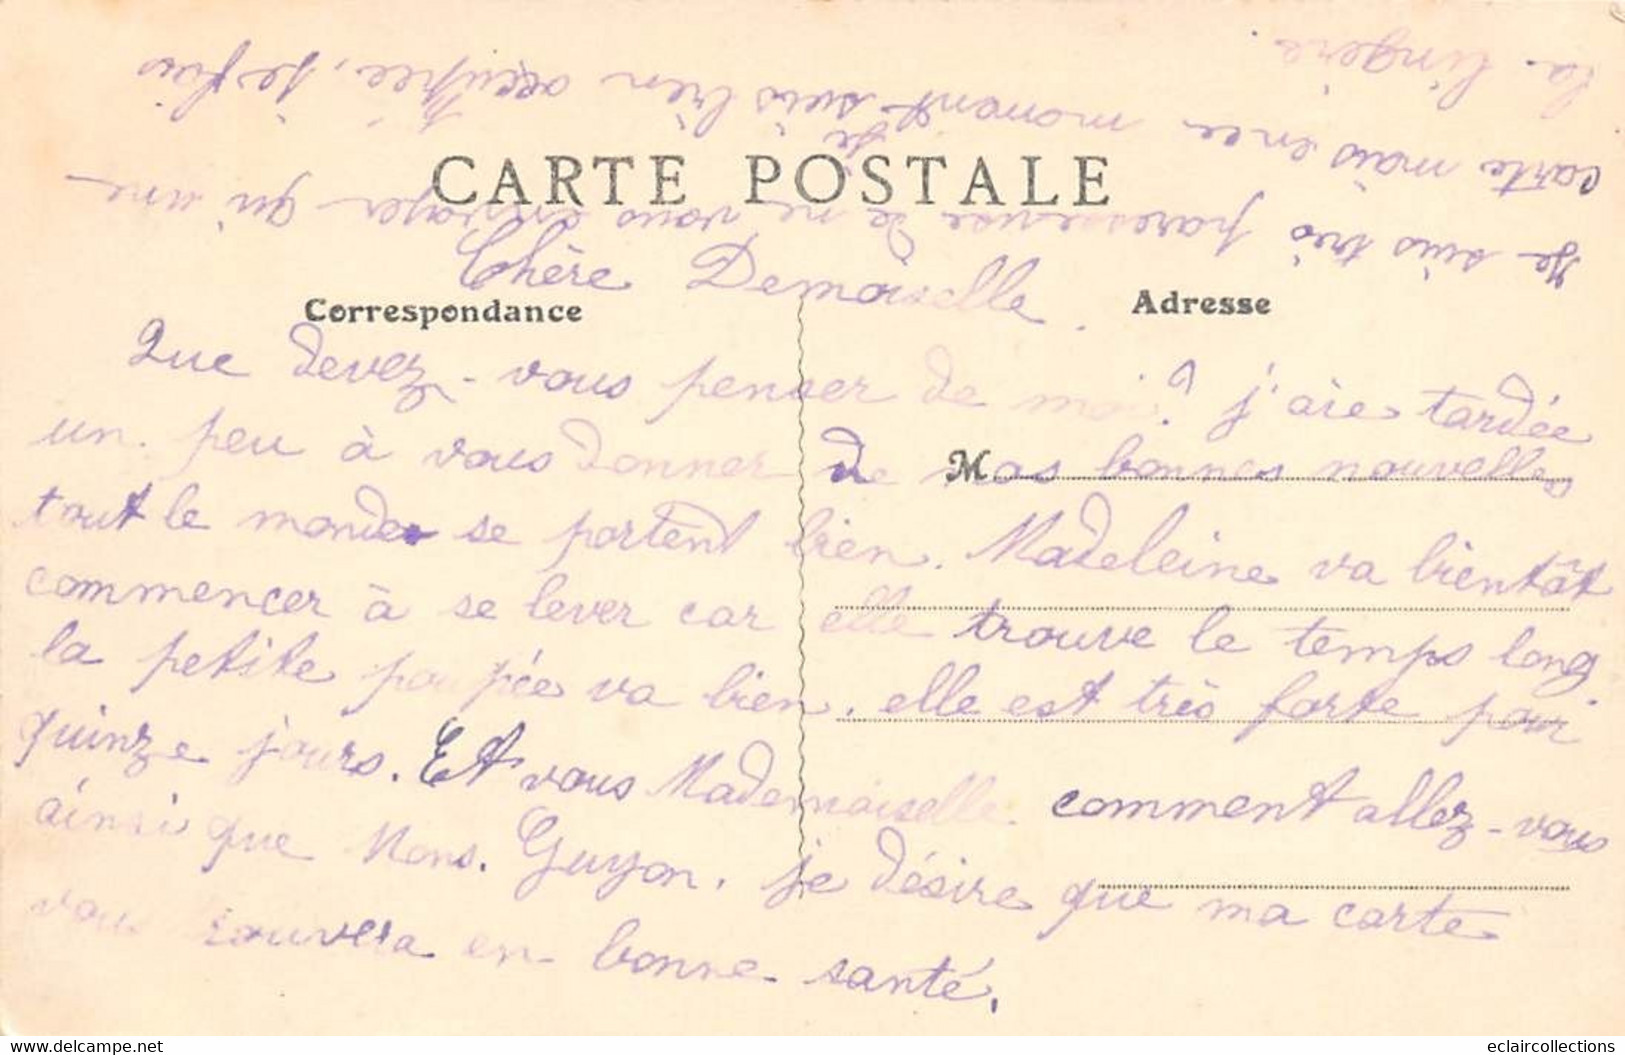 CARTE POSTALE
Correspondance
Adresse
M
Chère Demoiselle.
Que devez-vous penser de moi? j'aie tardée
un peu à vous donner de nos bonnes nouvelles
tout le monde se portent bien. Madeleine va bientôt
commencer à se lever car elle trouve le temps long
la petite poupée va bien. elle est très forte pour
quinze jours. Et vous Mademoiselle comment allez-vous
ainsi que Mons. Guyon. je désire que ma carte
vous trouvera en bonne santé.
Je suis très paresseuse de ne vous envoyer qu'une
carte mais en ce moment je suis bien occupée, je fais
la lingère.
delcampe.net
eclaircollections